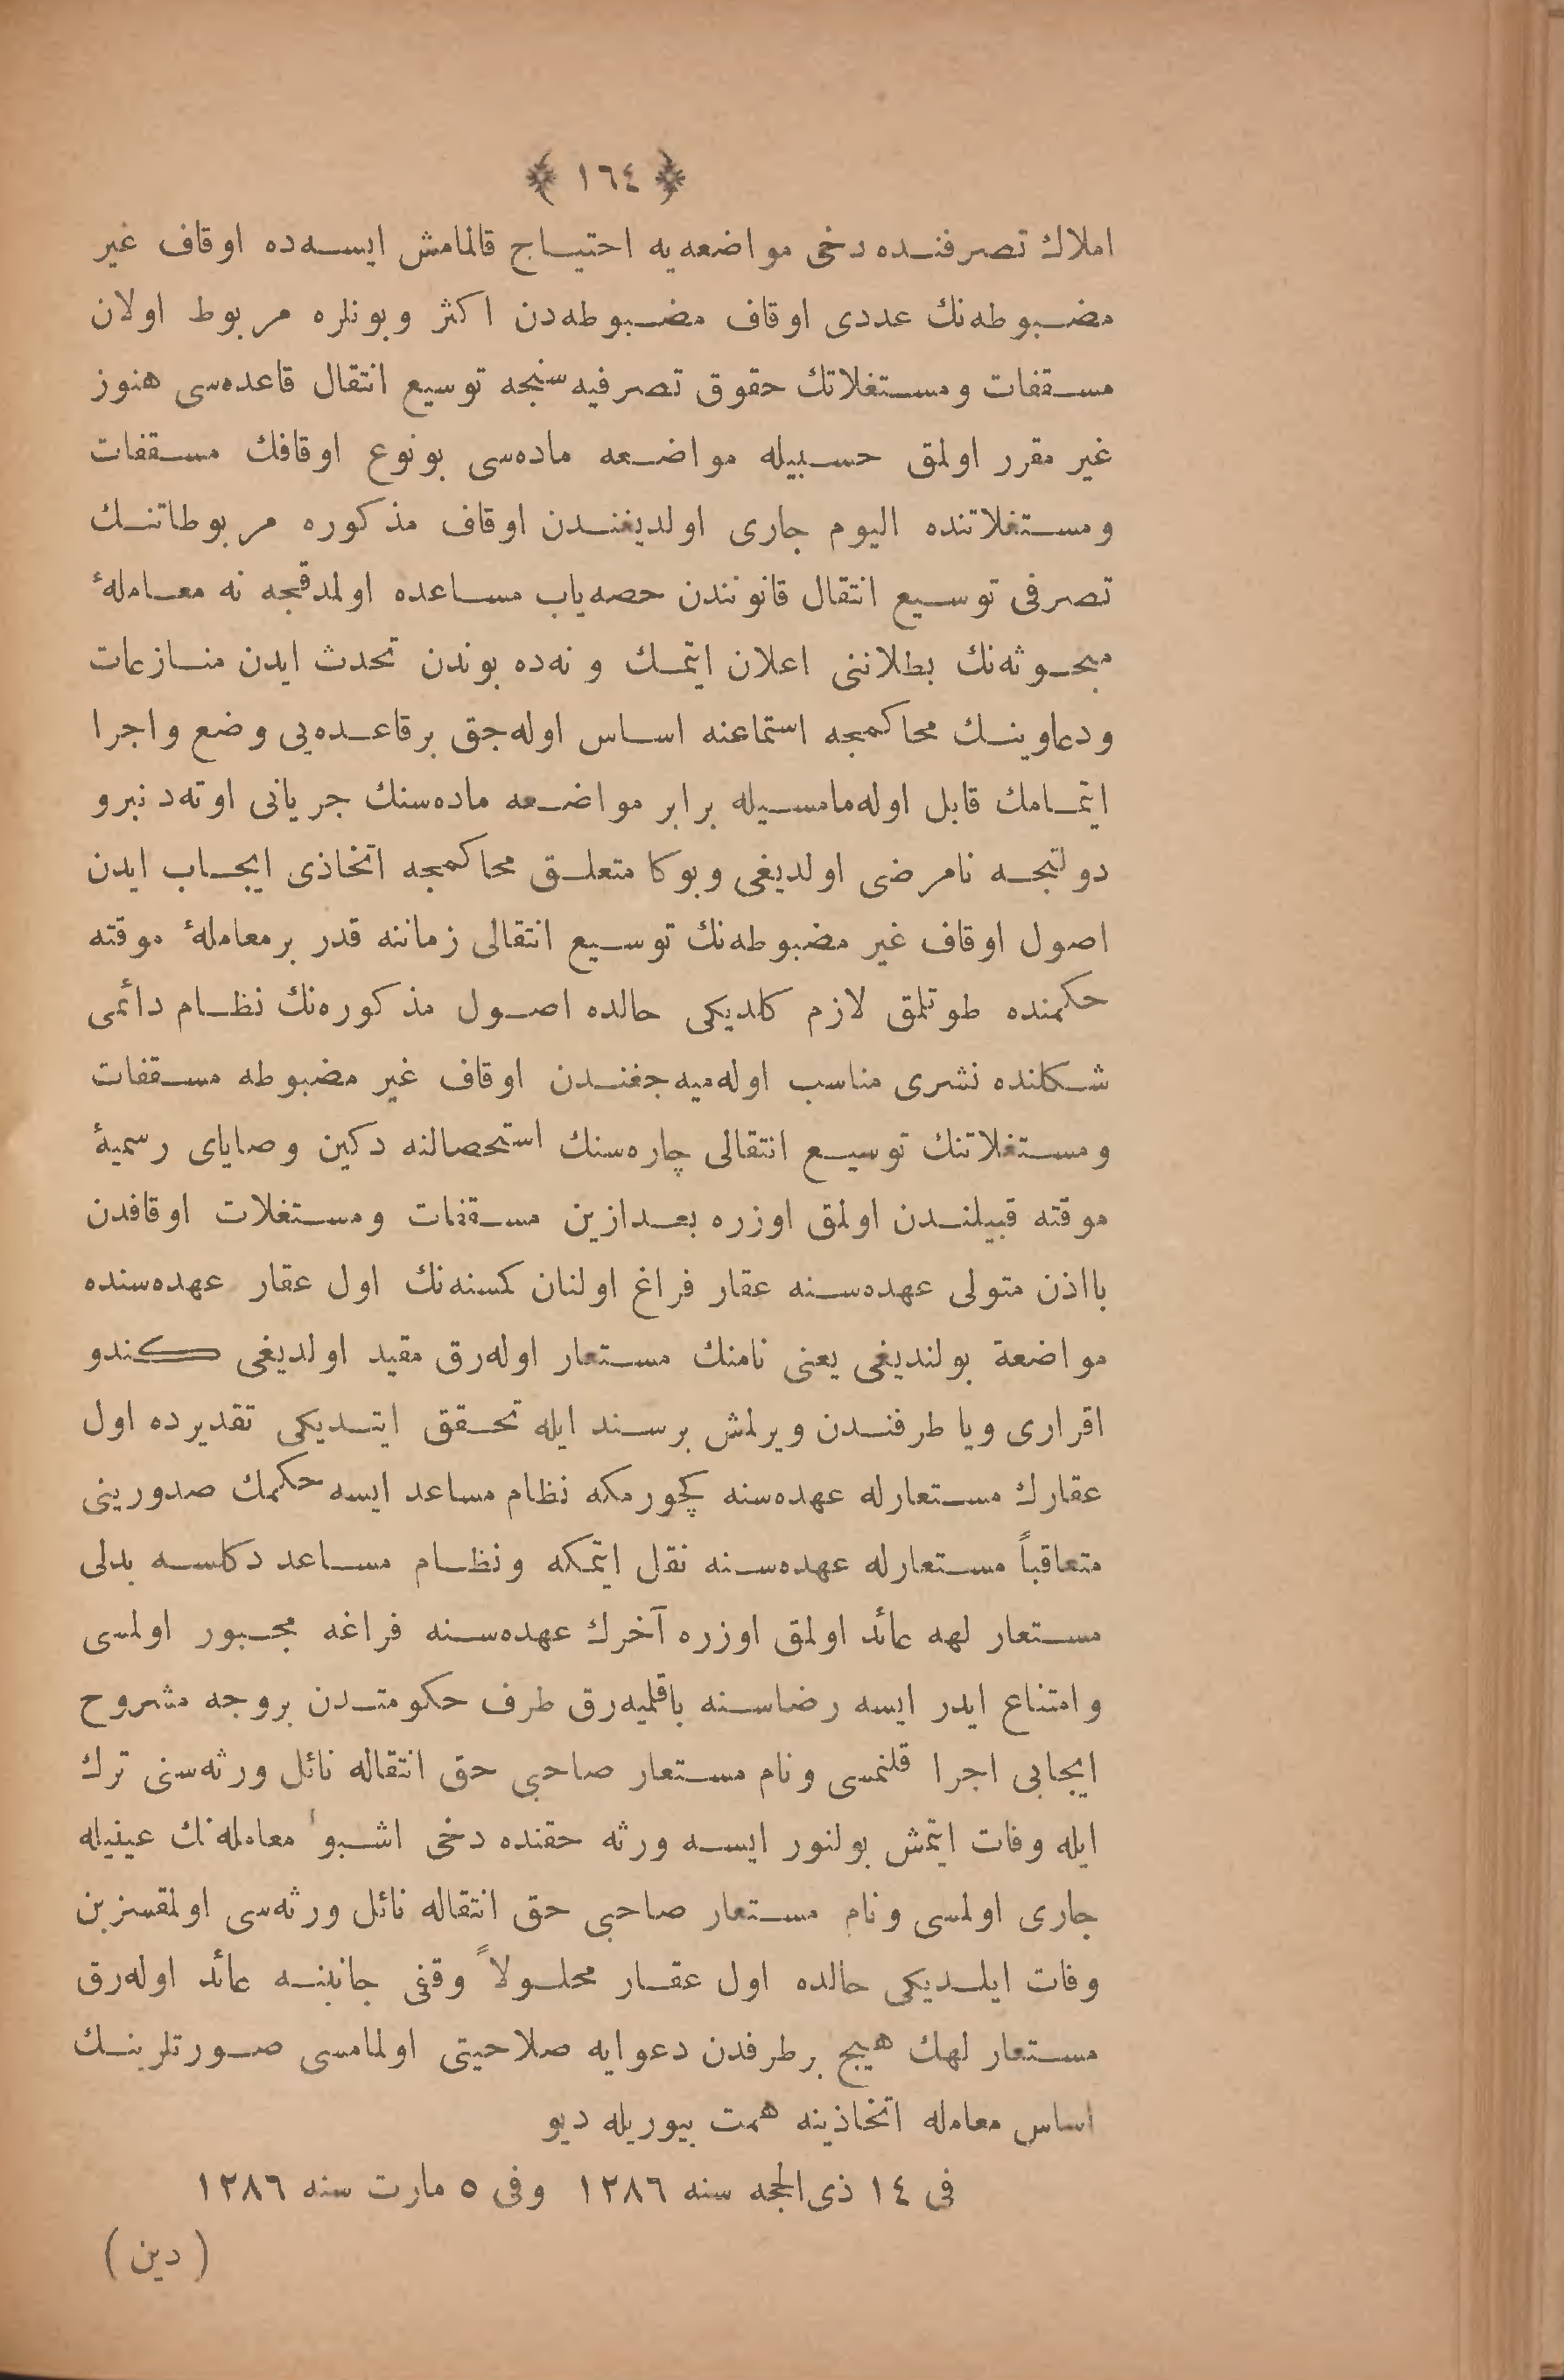 ﴿ ١٦٤ ﴾
املاك تصرفنده دخى مواضعه‌يه احتياج قالمامش ايسه‌ده اوقاف غير
مضبوطه‌نك عددى اوقاف مضبوطه‌دن اكثر وبونلره مربوط اولان
مسقفات ومستغلاتك حقوق تصرفيه‌سنجه توسيع انتقال قاعده‌سى هنوز
غير مقرر اولمق حسبيله مواضعه ماده‌سى بونوع اوقافك مسقفات
ومستغلاتنده اليوم جارى اولديغندن اوقاف مذكوره مربوطاتنك
تصرفى توسيع انتقال قانونندن حصه‌ياب مساعده اولمدقجه نه معاملهٔ
مبحوثه‌نك بطلاننى اعلان ايتمك ونه‌ده بوندن تحدث ايدن منازعات
ودعاوينك محاكمجه استماعنه اساس اوله‌جق برقاعده‌يى وضع واجرا
ايتمامك قابل اوله‌مامسيله برابر مواضعه ماده‌سنك جريانى اوته‌دنبرو
دولتجه نامرضى اولديغى وبوكا متعلق محاكمجه اتخاذى ايجاب ايدن
اصول اوقاف غير مضبوطه‌نك توسيع انتقالى زماننه قدر برمعاملهٔ موقته
حكمنده طوتلمق لازم كلديكى حالده اصول مذكوره‌نك نظام دائمى
شكلنده نشرى مناسب اوله‌ميه‌جغندن اوقاف غير مضبوطه مسقفات
ومستغلاتنك توسيع انتقالى چاره‌سنك استحصالنه دكين وصاياى رسميهٔ
موقته قبيلندن اولمق اوزره بعدازين مسقفات ومستغلات اوقافدن
بااذن متولى عهده‌سنه عقار فراغ اولنان كسنه‌نك اول عقار عهده‌سنده
مواضعة بولنديغى يعنى نامنك مستعار اوله‌رق مقيد اولديغى كندو
اقرارى ويا طرفندن ويرلمش برسند ايله تحقق ايتديكى تقديرده اول
عقارك مستعارله عهده‌سنه كچورمكه نظام مساعد ايسه حكمك صدورينى
متعاقباً مستعارله عهده‌سنه نقل ايتمكه ونظام مساعد دكلسه بدلى
مستعار لهه عائد اولمق اوزره آخرك عهده‌سنه فراغه مجبور اولمسى
وامتناع ايدر ايسه رضاسنه باقلميه‌رق طرف حكومتدن بروجه مشروح
ايجابى اجرا قلنمسى ونام مستعار صاحبى حق انتقاله نائل ورثه‌سنى ترك
ايله وفات ايتمش بولنور ايسه ورثه حقنده دخى اشبو معامله‌نك عينيله
جارى اولمسى ونام مستعار صاحبى حق انتقاله نائل ورثه‌سى اولمقسزين
وفات ايلديكى حالده اول عقار محلولاً وقفى جانبنه عائد اوله‌رق
مستعار لهك هيچ برطرفدن دعوايه صلاحيتى اولمامسى صورتلرينك
اساس معامله اتخاذينه همت بيوريله ديو
فى ١٤ ذى‌الحجه سنه ١٢٨٦ وفى ٥ مارت سنه ١٢٨٦
( دين )